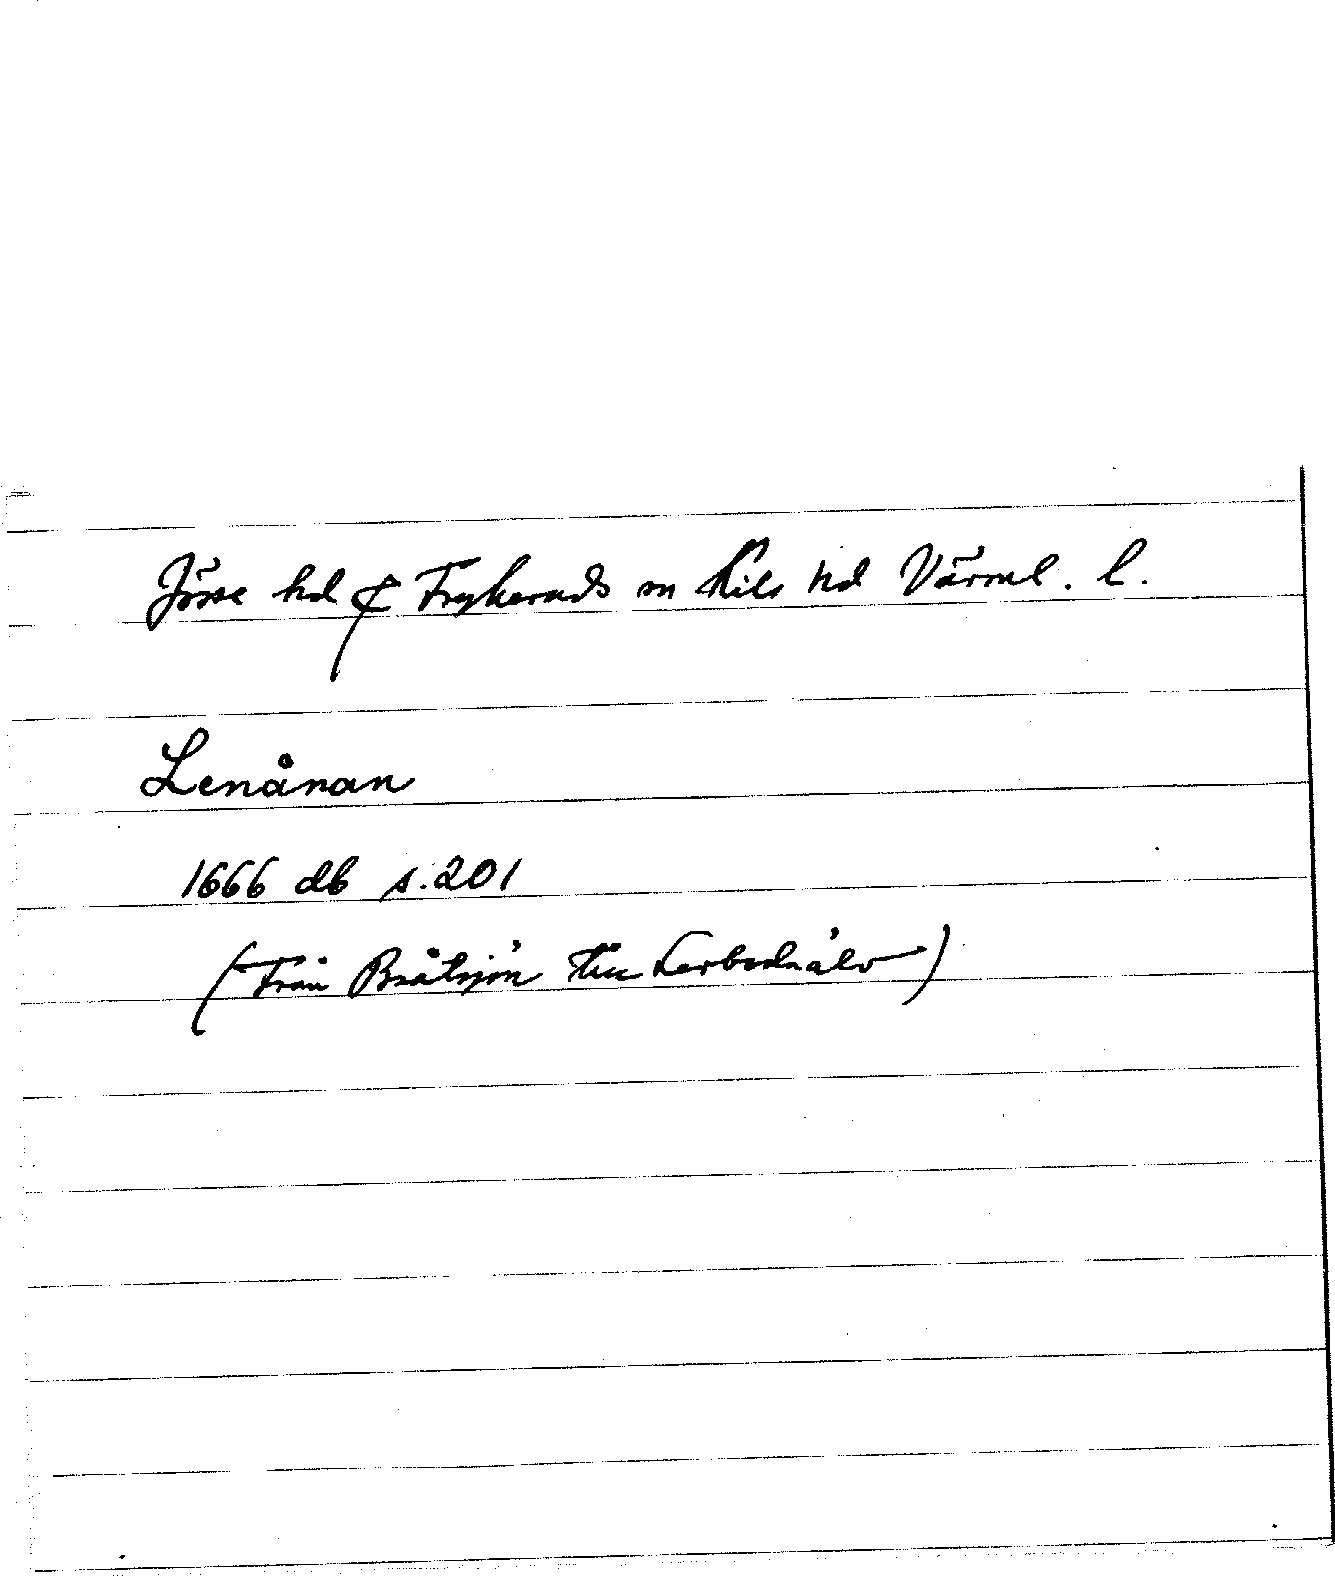 Jösse hd & Frykeruds sn Kils hd Värml. l.
Lenånan
1666 db s. 201
(Från Bråtsjön till Lerbodaälv)